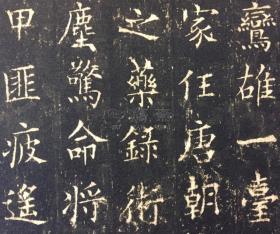 鸞雄一臺
家任唐朝
之藥錄術
塵驚命将
甲匪疲遙